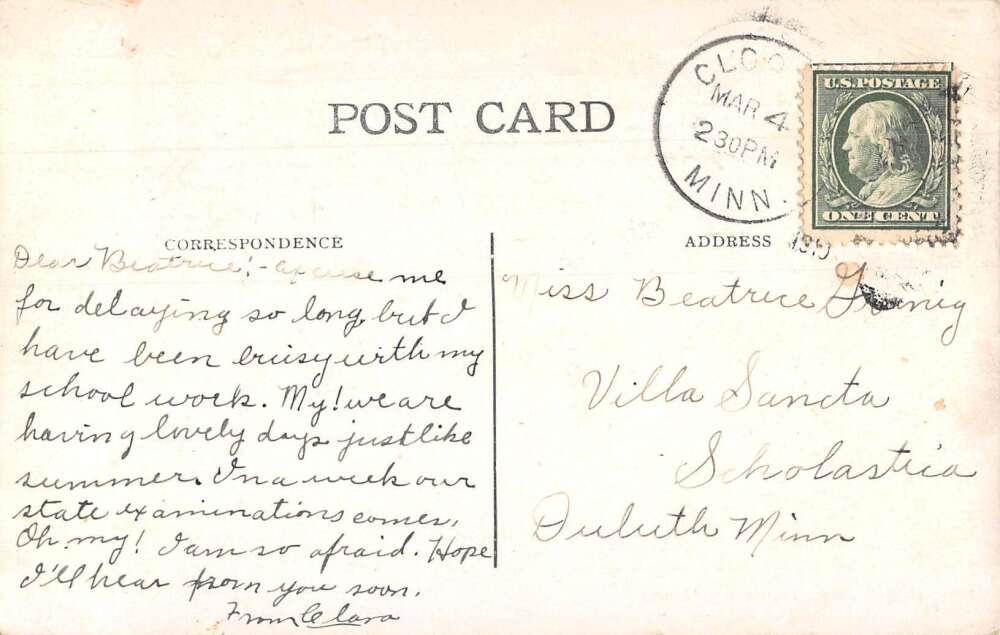 POST CARD
CLOQ
MAR 4
230PM
MINN.
U.S. POSTAGE
ONE CENT
CORRESPONDENCE
Dear Beatrice! - excuse me
for delaying so long, but I
have been busy with my
school work. My! we are
having lovely days just like
summer. In a week our
state examinations comes.
Oh, my! I am so afraid. Hope
I'll hear from you soon.
From Clara
ADDRESS
Miss Beatrice
Villa Sancta
Scholastica
Duluth Minn